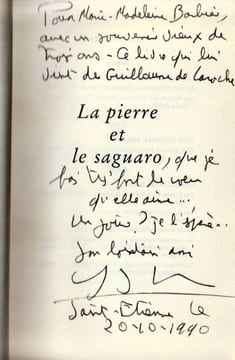 Pour Marie-Madeleine Barbier,
avec un souvenir vieux de
trois ans - Ce livre qui lui
vient de Guillaume de Laroche
La pierre
et
le saguaro, que je
fais très fort le vœu
qu'elle aime...
Un jour? je l'espère...
Son lointain ami
Saint-Etienne le
20-10-1990